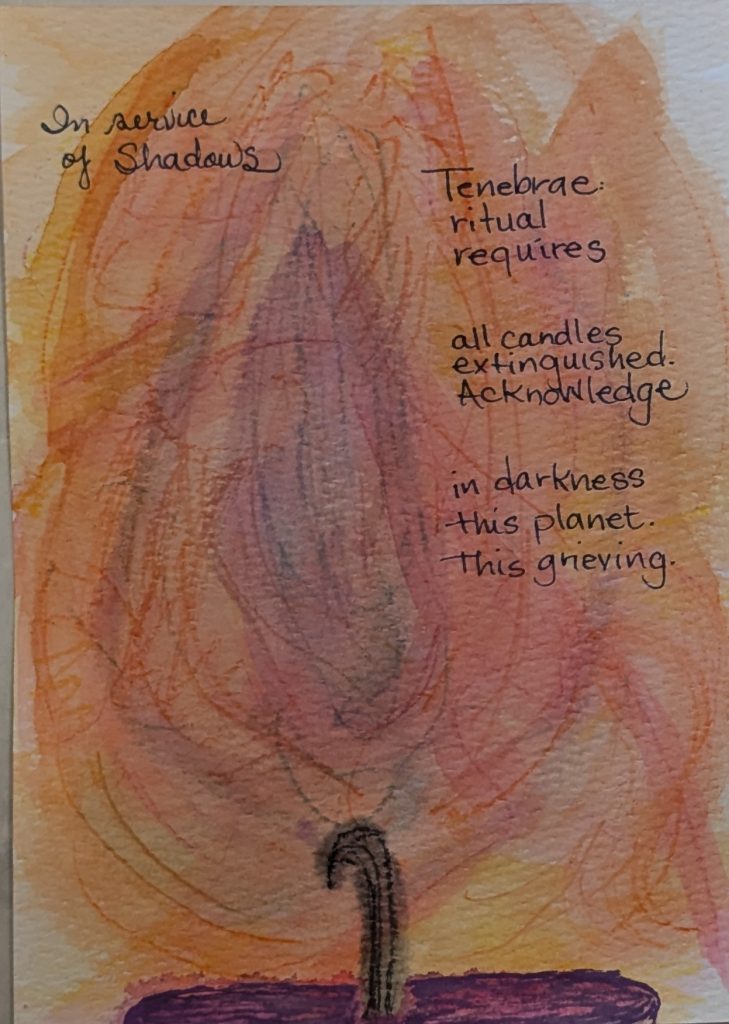 In service
of Shadows
Tenebrae:
ritual
requires
all candles
extinguished.
Acknowledge
in darkness
this planet.
This grieving.